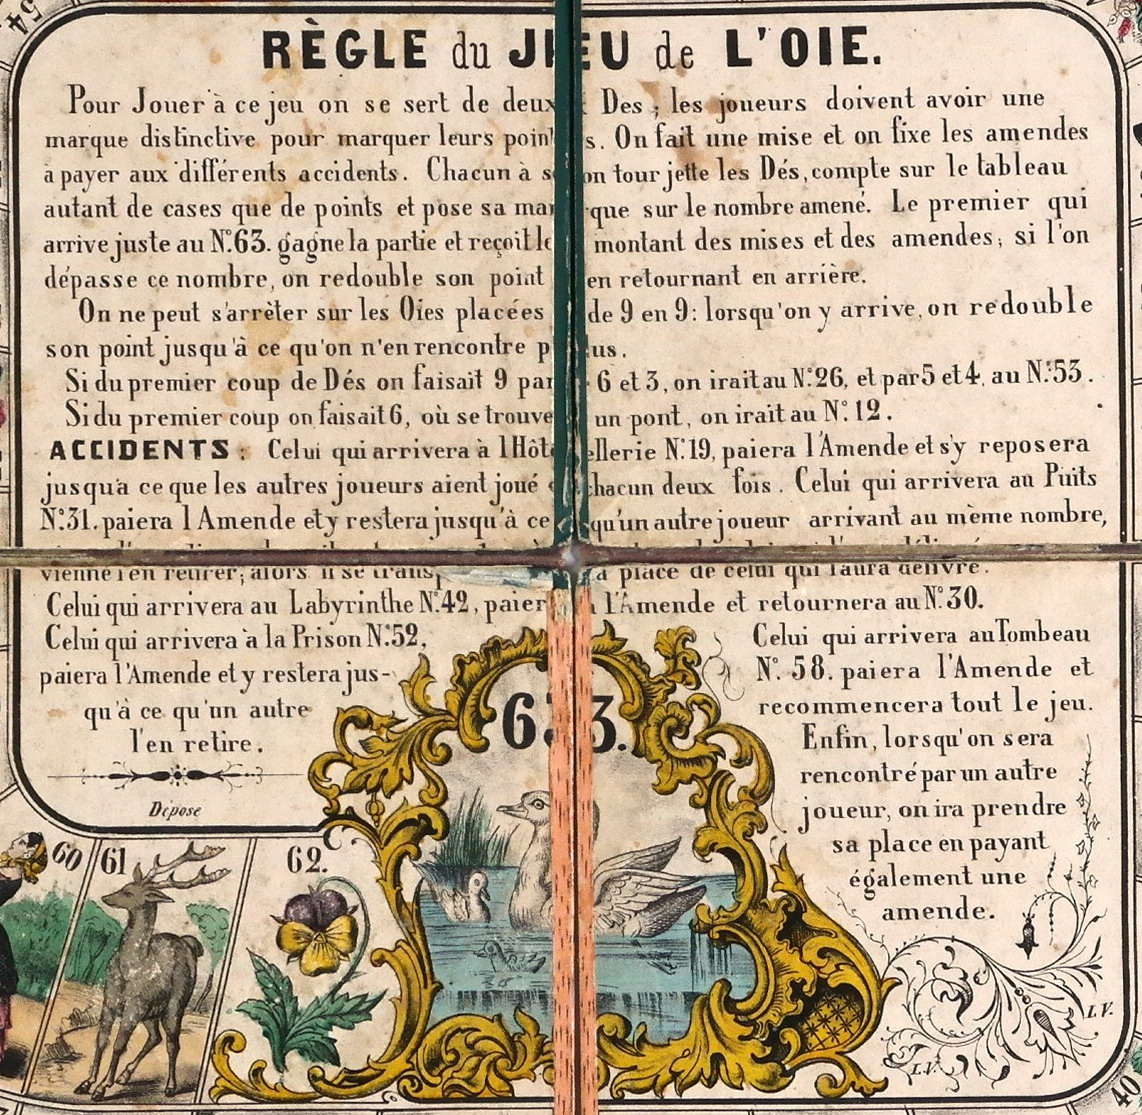 54
RÈGLE du JEU de L'OIE.
Pour Jouer à ce jeu on se sert de deux Des ; les joueurs doivent avoir une
marque distinctive pour marquer leurs points. On fait une mise et on fixe les amendes
à payer aux différents accidents. Chacun à son tour jette les Dés, compte sur le tableau
autant de cases que de points et pose sa marque sur le nombre amené. Le premier qui
arrive juste au N°63. gagne la partie et reçoit le montant des mises et des amendes; si l'on
dépasse ce nombre, on redouble son point en retournant en arrière.
On ne peut s'arrêter sur les Oies placées de 9 en 9: lorsqu'on y arrive, on redouble
son point jusqu'à ce qu'on n'en rencontre plus.
Si du premier coup de Dés on faisait 9 par 6 et 3, on irait au N°26, et par 5 et 4, au N°53.
Si du premier coup on faisait 6, où se trouve un pont, on irait au N° 12.
ACCIDENTS: Celui qui arrivera à l'Hôtellerie N°19, paiera l'Amende et s'y reposera
jusqu'à ce que les autres joueurs aient joué chacun deux fois. Celui qui arrivera au Puits
N°31. paiera l'Amende et y restera jusqu'à ce qu'un autre joueur arrivant au même nombre,
vienne l'en retirer; alors il se transp a place de celui qui l'aura délivré.
Celui qui arrivera au Labyrinthe N°42, paiera l'Amende et retournera au N°30.
Celui qui arrivera à la Prison N°52,
paiera l'Amende et y restera jus-
qu'à ce qu'un autre
l'en retire.
Dépose
Celui qui arrivera au Tombeau
N° 58. paiera l'Amende et
recommencera tout le jeu.
Enfin, lorsqu'on sera
rencontré par un autre
joueur, on ira prendre
sa place en payant
également une
amende.
63.
60
61
62.
L.V.
L.V.
40